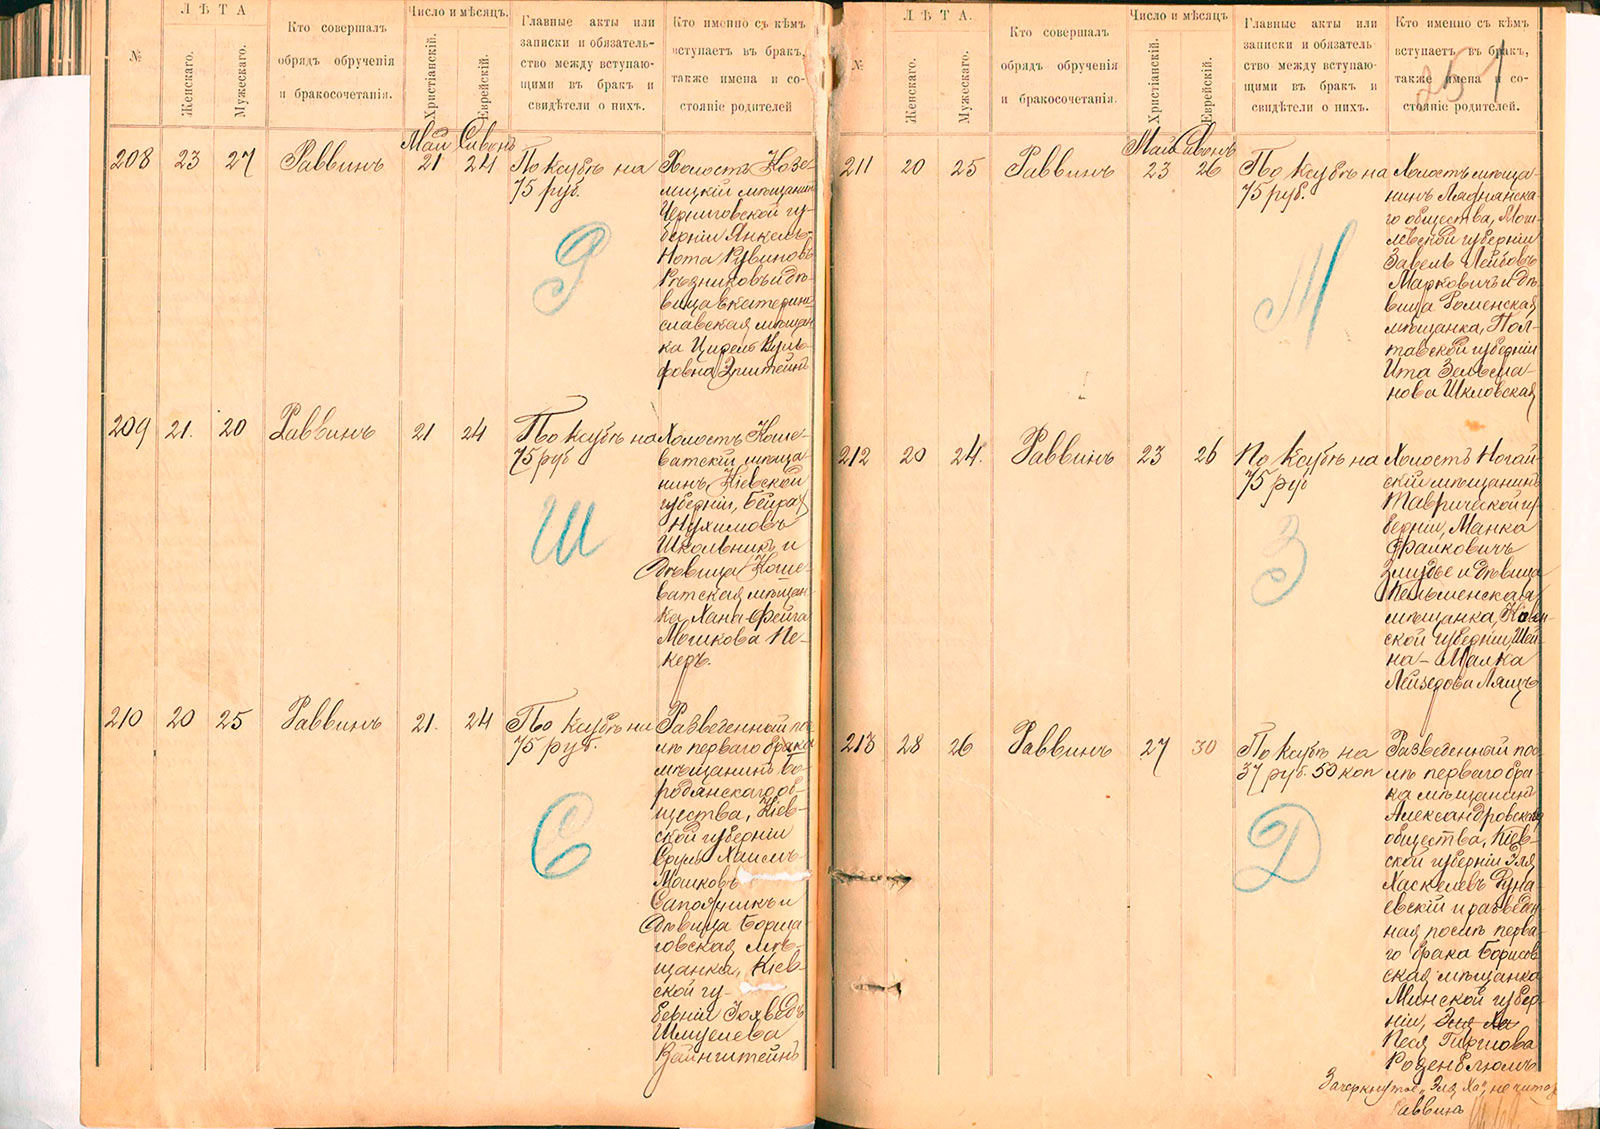 №
ЛѢТА
Женскаго.
Мужескаго.
Кто совершалъ
обрядъ обрученія
и бракосочетанія.
Число и мѣсяцъ.
Христіанскій.
Еврейскій.
Главные акты или
записки и обязатель-
ство между вступаю-
щими въ бракъ и
свидѣтели о нихъ.
Кто именно съ кѣмъ
вступаетъ въ бракъ,
также имена и со-
стояніе родителей
Май Сивонъ
208 23 27 Раввинъ 21 24
По ксубѣ на
75 руб.
Р
Холостъ Козе-
лицкій мѣщанинъ
Черниговской гу-
берніи Янкель-
Нота Рувиновъ
Рѣзниковъ и дѣ-
вица Екатерино-
славская мѣщан-
ка Ципель Вуль-
фовна Эпштейнъ
209 21. 20 Раввинъ 21 24
По ксубѣ на
75 руб
Ш
Холостъ Коше-
ватскій мѣща-
нинъ, Кіевской
губерніи, Бейрах
Нухимовъ
Школьникъ и
дѣвица Коше-
ватская мѣщан-
ка Хана-Фейга
Мошкова Пе-
керъ.
210 20 25 Раввинъ 21. 24
По ксубѣ на
75 руб.
С
Разведенный по-
слѣ перваго брака
мѣщанинъ Бо-
родянскаго об-
щества, Кіев-
ской губерніи
Сруль Хаимъ
Мошковъ
Сапожникъ и
дѣвица Борща-
говская мѣ-
щанка, Кіев-
ской гу-
берніи Юхведъ
Шмулева
Вайнштейнъ
251
№
ЛѢТА.
Женскаго.
Мужескаго.
Кто совершалъ
обрядъ обрученія
и бракосочетанія.
Число и мѣсяцъ
Христіанскій.
Еврейскій.
Главные акты или
записки и обязатель
ство между вступаю-
щими въ бракъ и
свидѣтели о нихъ.
Кто именно съ кѣмъ
вступаетъ въ бракъ,
также имена и со-
стояніе родителей.
Май Сивонъ
211 20 25 Раввинъ 23 26
По ксубѣ на
75 руб.
М
Холостъ мѣща-
нинъ Ляднянска-
го общества, Моги-
левской губерніи
Завель Лейбовъ
Марковичъ и дѣ-
вица Роменская
мѣщанка, Пол-
тавской губерніи
Ита Зельма-
нова Шкловская
212 20 24. Раввинъ 23 26
По ксубѣ на
75 руб
З
Холостъ Ногай-
скій мѣщанинъ
Таврической гу-
берніи, Манка
Фраиковичъ
и дѣвица
Кельменская
мѣщанка, Ковен-
ской губерніи, Шей-
на-Малка
Лейзерова Лящъ
213 28 26 Раввинъ 27 30
По ксубѣ на
37 руб. 50 коп
Д
Разведенный пос-
лѣ перваго бра-
ка мѣщанинъ
Александровскаго
общества, Кіев-
ской губерніи Эля
Хаскелевъ Дуна-
евскій и разведен
ная послѣ перва-
го брака Борисов
ская мѣщанка
Минской губер-
ніи, Эля Ха
Песя Гиршова
Розенблюмъ
Зачеркнутое „Эля Ха" не читать
Раввинъ